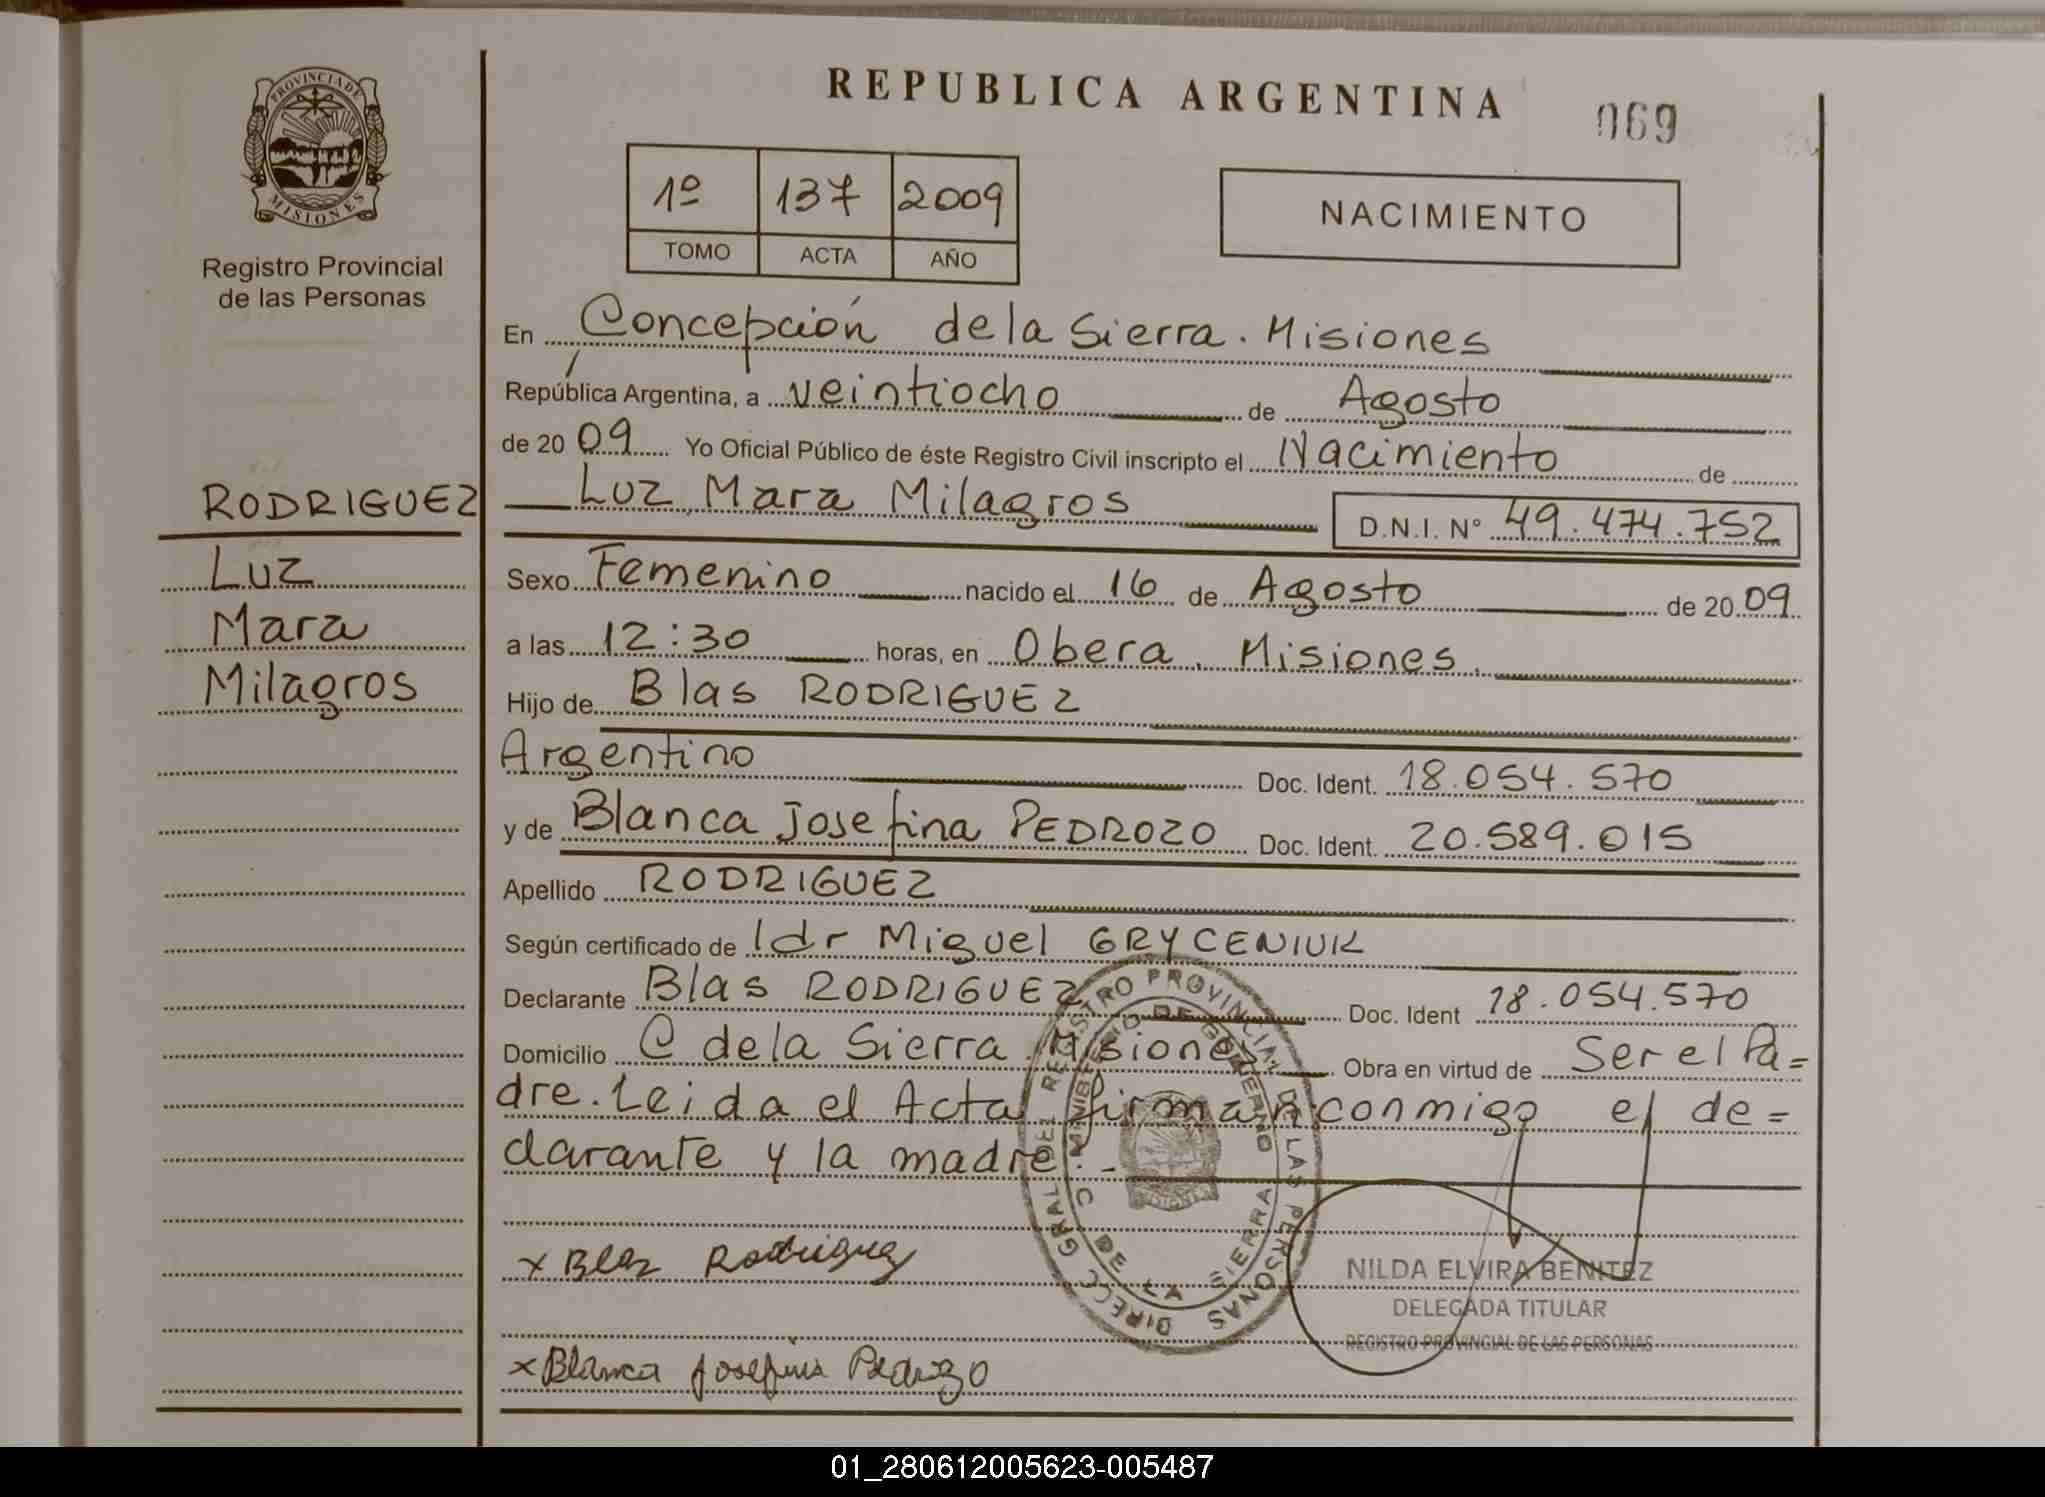 PROVINCIA DE
MISIONES
Registro Provincial
de las Personas
RODRIGUEZ
Luz
Mara
Milagros
REPUBLICA ARGENTINA
069
1º 137 2009
TOMO ACTA AÑO
NACIMIENTO
En Concepción de la Sierra. Misiones
República Argentina, a veintiocho de Agosto
de 2009 Yo Oficial Público de éste Registro Civil inscripto el Nacimiento de
Luz Mara Milagros D.N.I. Nº 49.474.752
Sexo Femenino nacido el 16 de Agosto de 2009
a las 12:30 horas, en Obera. Misiones.
Hijo de Blas RODRIGUEZ
Argentino Doc. Ident. 18.054.570
y de Blanca Josefina PEDROZO Doc. Ident. 20.589.015
Apellido RODRIGUEZ
Según certificado de Idr Miguel GRYCENIUK
Declarante Blas RODRIGUEZ Doc. Ident 18.054.570
Domicilio C de la Sierra. Misiones Obra en virtud de Ser el Pa=
dre. Leida el Acta firman conmigo el de=
clarante y la madre.-
DIRECC GRAL DEL REGISTRO PROVINCIAL DE LAS PERSONAS
MINISTERIO DE GOBIERNO
C DE LA SIERRA
MISIONES
x Blas Rodriguez
NILDA ELVIRA BENITEZ
DELEGADA TITULAR
REGISTRO PROVINCIAL DE LAS PERSONAS
x Blanca Josefina Pedrozo
01_280612005623-005487